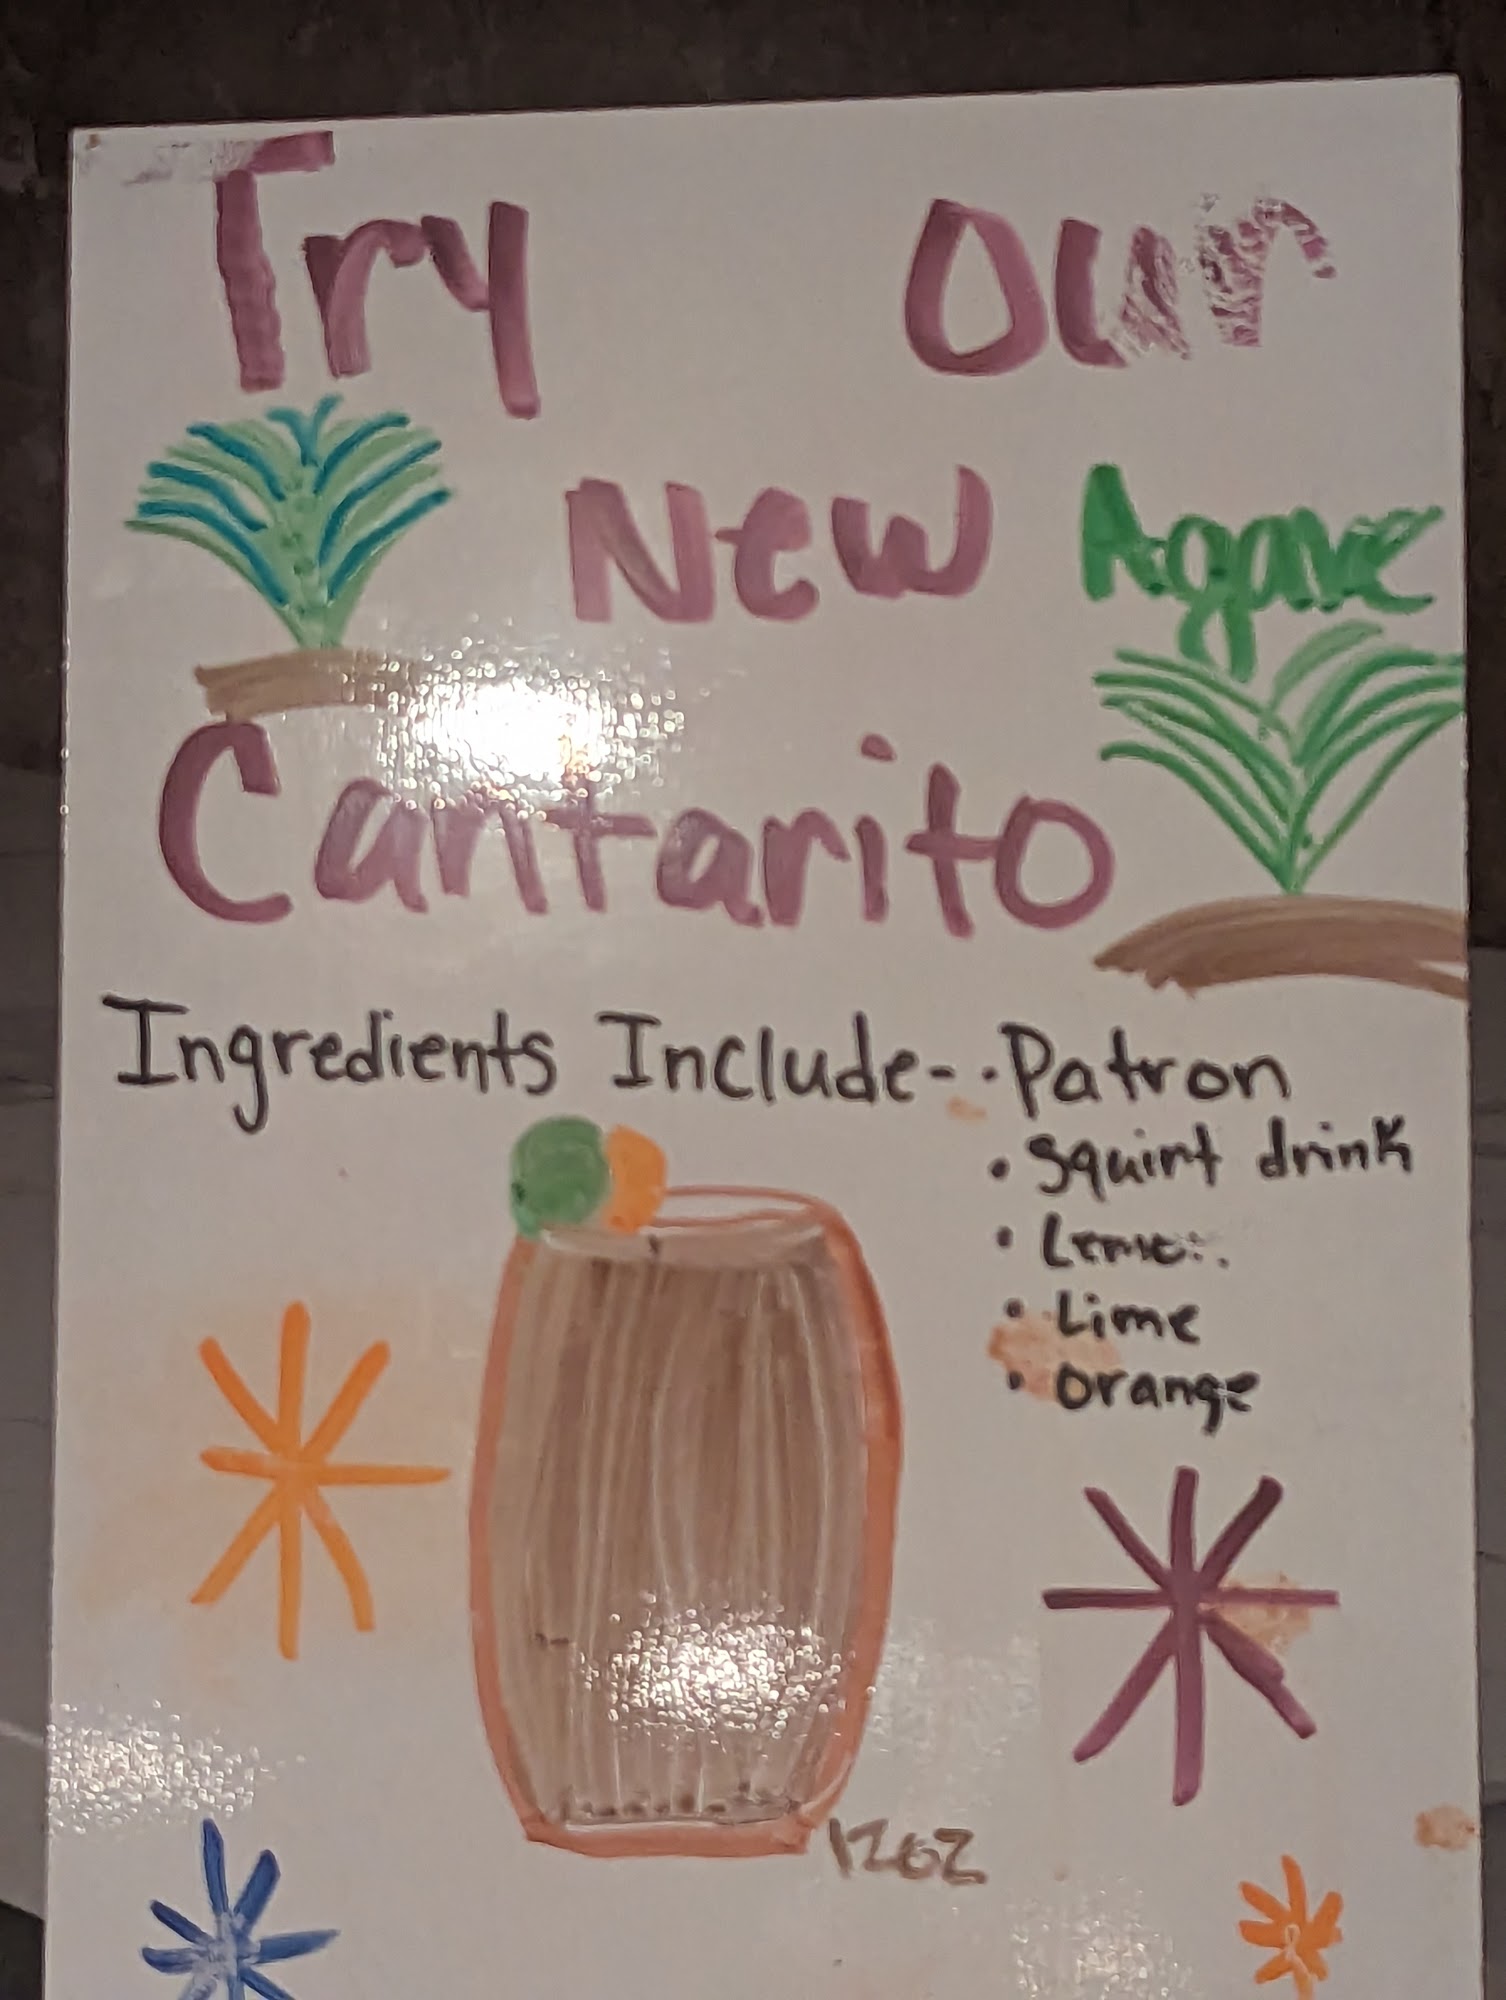 Try Our
New Agave
Cantarito
Ingredients Include-- · Patron
· Squirt drink
· Lime
· Orange
12oz